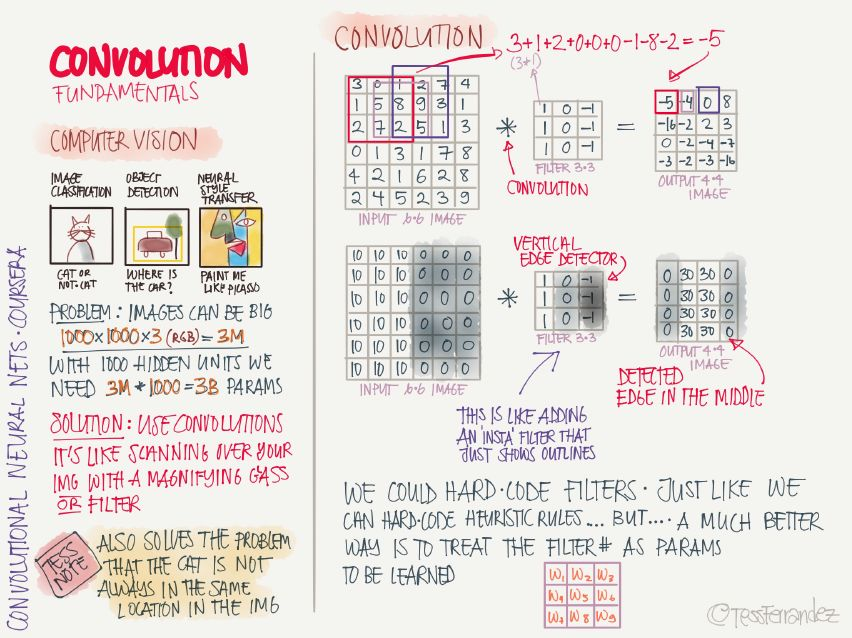 CONVOLUTIONAL NEURAL NETS · COURSERA
CONVOLUTION
FUNDAMENTALS
COMPUTER VISION
IMAGE
CLASSIFICATION
CAT OR
NOT-CAT
OBJECT
DETECTION
WHERE IS
THE CAR?
NEURAL
STYLE
TRANSFER
PAINT ME
LIKE PICASSO
PROBLEM: IMAGES CAN BE BIG
1000×1000×3 (RGB) = 3M
WITH 1000 HIDDEN UNITS WE
NEED 3M * 1000 = 3B PARAMS
SOLUTION: USE CONVOLUTIONS
IT'S LIKE SCANNING OVER YOUR
IMG WITH A MAGNIFYING GASS
OR FILTER
TESS
NOTE
ALSO SOLVES THE PROBLEM
THAT THE CAT IS NOT
ALWAYS IN THE SAME
LOCATION IN THE IMG
CONVOLUTION
3+1+2+0+0+0-1-8-2=-5
(3*1)
3 0 1 2 7 4
1 5 8 9 3 1
2 7 2 5 1 3
0 1 3 1 7 8
4 2 1 6 2 8
2 4 5 2 3 9
INPUT 6·6 IMAGE
*
CONVOLUTION
1 0 -1
1 0 -1
1 0 -1
FILTER 3·3
=
-5 -4 0 8
-10 -2 2 3
0 -2 -4 -7
-3 -2 -3 -16
OUTPUT 4·4
IMAGE
10 10 10 0 0 0
10 10 10 0 0 0
10 10 10 0 0 0
10 10 10 0 0 0
10 10 10 0 0 0
10 10 10 0 0 0
INPUT 6·6 IMAGE
*
VERTICAL
EDGE DETECTOR
1 0 -1
1 0 -1
1 0 -1
FILTER 3·3
=
0 30 30 0
0 30 30 0
0 30 30 0
0 30 30 0
OUTPUT 4·4
IMAGE
THIS IS LIKE ADDING
AN 'INSTA' FILTER THAT
JUST SHOWS OUTLINES
DETECTED
EDGE IN THE MIDDLE
WE COULD HARD-CODE FILTERS · JUST LIKE WE
CAN HARD-CODE HEURISTIC RULES... BUT.... A MUCH BETTER
WAY IS TO TREAT THE FILTER # AS PARAMS
TO BE LEARNED
W1 W2 W3
W4 W5 W6
W7 W8 W9
@TessFerrandez